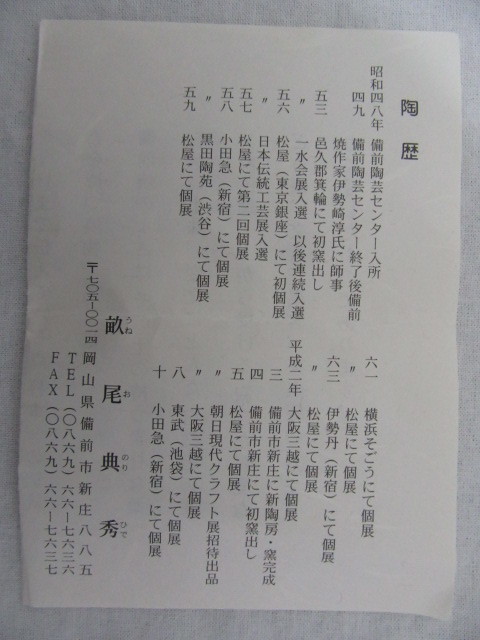 陶歴
昭和四八年 備前陶芸センター入所
四九 備前陶芸センター終了後備前
焼作家伊勢崎淳氏に師事
五三 邑久郡箕輪にて初窯出し
〃 一水会展入選 以後連続入選
五六 松屋（東京銀座）にて初個展
〃 日本伝統工芸展入選
五七 松屋にて第二回個展
五八 小田急（新宿）にて個展
〃 黒田陶苑（渋谷）にて個展
五九 松屋にて個展
六一 横浜そごうにて個展
〃 松屋にて個展
六三 伊勢丹（新宿）にて個展
〃 松屋にて個展
平成二年 大阪三越にて個展
三 備前市新庄に新陶房・窯完成
四 備前市新庄にて初窯出し
五 松屋にて個展
〃 朝日現代クラフト展招待出品
〃 大阪三越にて個展
八 東武（池袋）にて個展
十 小田急（新宿）にて個展
畝尾典秀
うねおのりひで
〒七〇五―〇〇一四 岡山県備前市新庄八八五
TEL（〇八六九）六六―七六三六
FAX（〇八六九）六六―七六三七